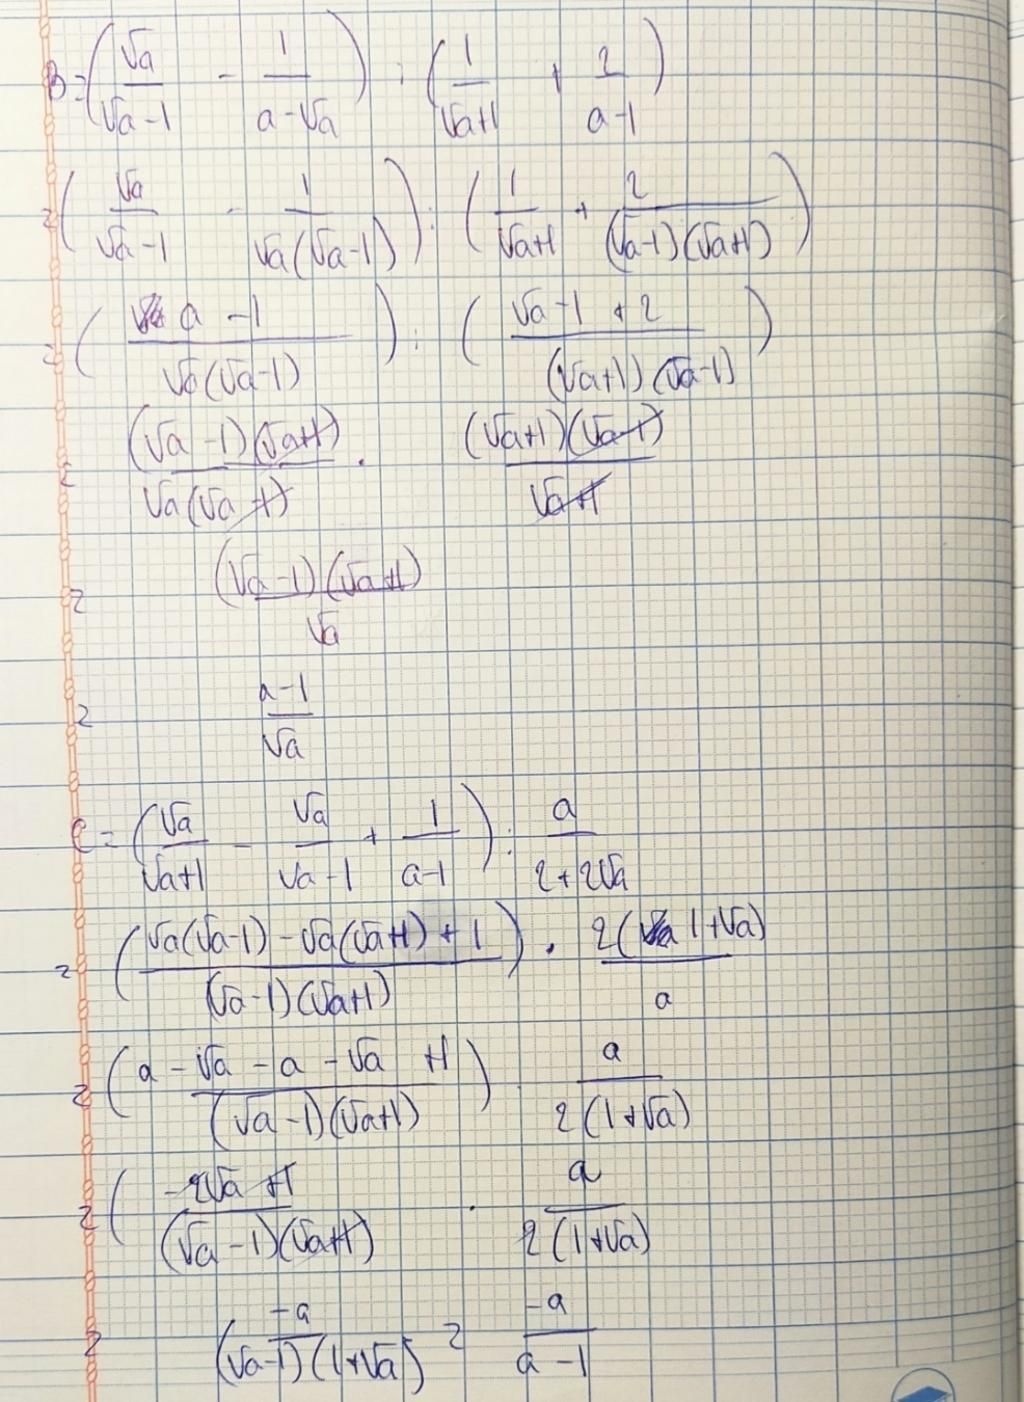 B = (√a/(√a-1) - 1/(a-√a)) : (1/(√a+1) + 2/(a-1))
= (√a/(√a-1) - 1/(√a(√a-1))) : (1/(√a+1) + 2/((√a-1)(√a+1)))
= ((a-1)/(√a(√a-1))) : ((√a-1+2)/((√a+1)(√a-1)))
= ((√a-1)(√a+1))/(√a(√a-1)) . ((√a+1)(√a-1))/(√a+1)
= ((√a-1)(√a+1))/√a
= (a-1)/√a
C = (√a/(√a+1) - √a/(√a-1) + 1/(a-1)) : a/(2+2√a)
= ((√a(√a-1) - √a(√a+1) + 1)/((√a-1)(√a+1))) . 2(1+√a)/a
= ((a-√a-a-√a+1)/((√a-1)(√a+1))) . a/(2(1+√a))
= ((-2√a+1)/((√a-1)(√a+1)) . a/(2(1+√a))
= -a/((√a-1)(1+√a)) = -a/(a-1)